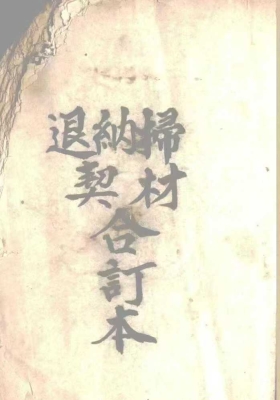 退納掃
契材
合訂本